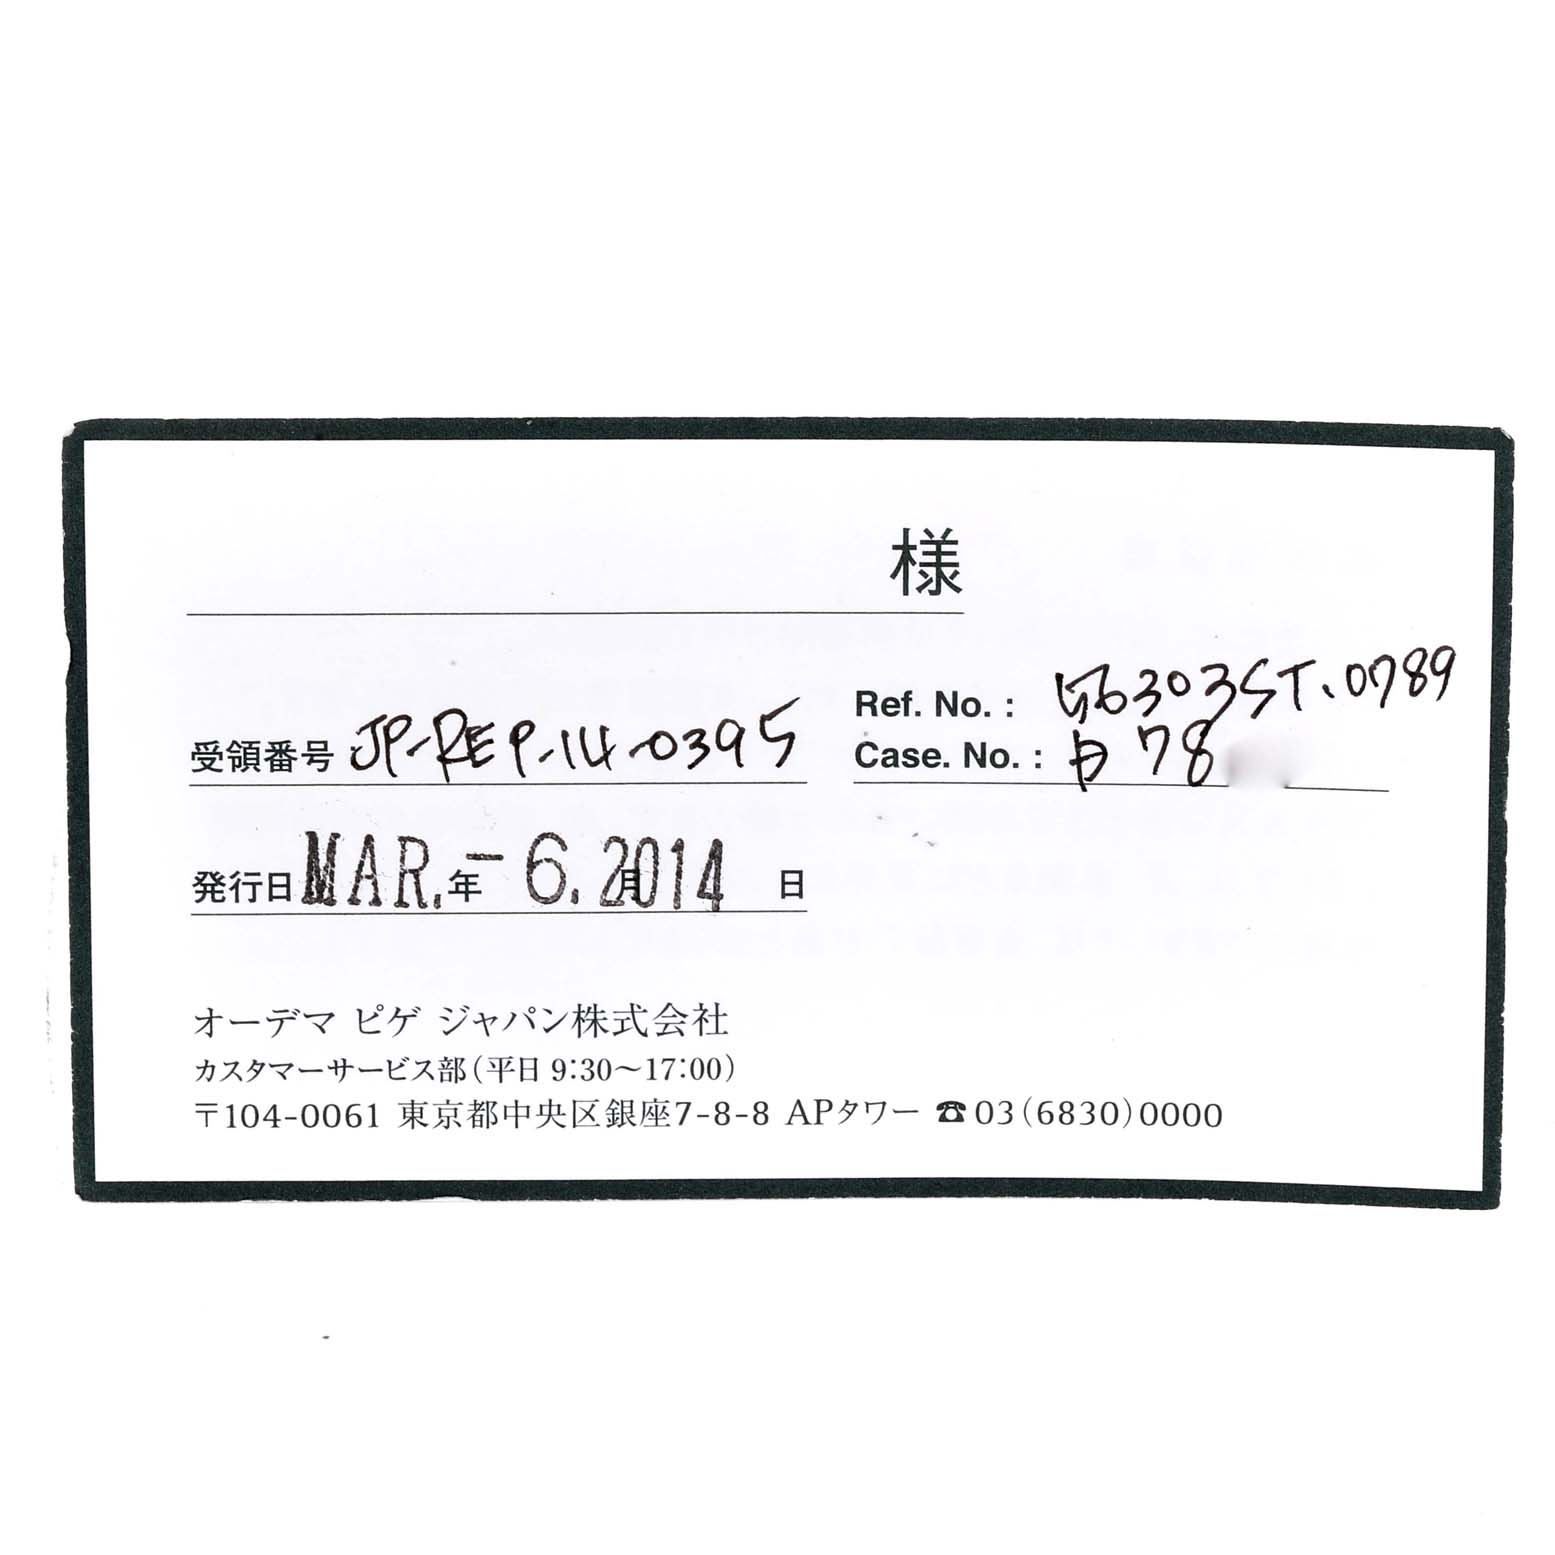 様
受領番号 JP-REP-14-0395
Ref. No. : 56303ST.0789
Case. No. : 78
発行日 MAR. 年 - 6. 月 2014 日
オーデマ ピゲ ジャパン株式会社
カスタマーサービス部(平日 9:30〜17:00)
〒104-0061 東京都中央区銀座7-8-8 APタワー ☎03(6830)0000